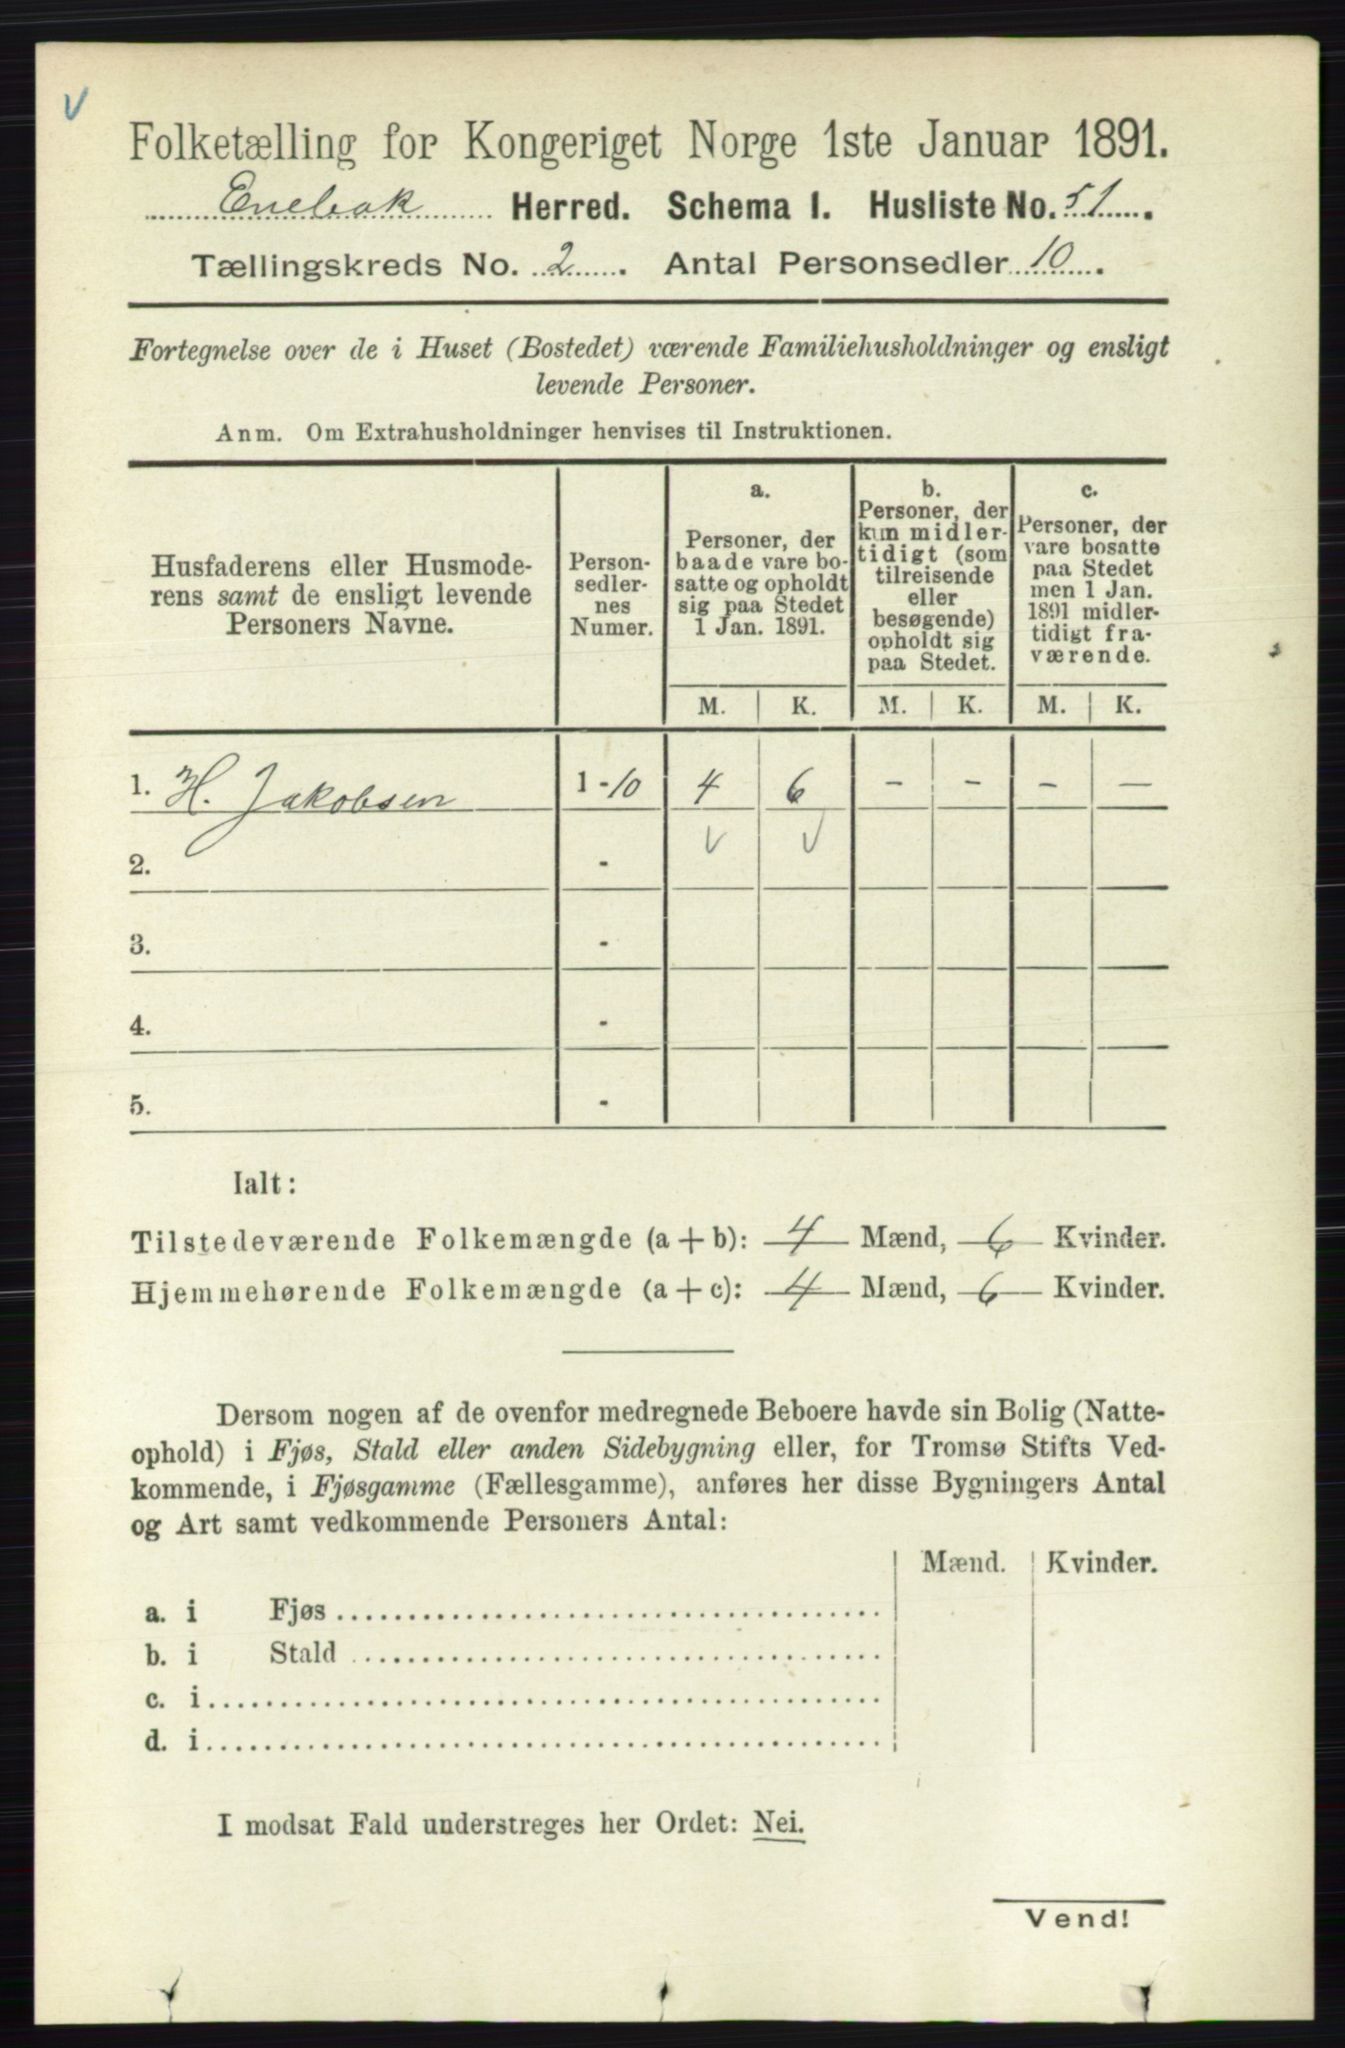 V
Folketælling for Kongeriget Norge 1ste Januar 1891.
Enebak Herred. Schema I. Husliste No. 51.
Tællingskreds No. 2. Antal Personsedler 10.
Fortegnelse over de i Huset (Bostedet) værende Familiehusholdninger og ensligt
levende Personer.
Anm. Om Extrahusholdninger henvises til Instruktionen.
Husfaderens eller Husmode-
rens samt de ensligt levende
Personers Navne.
Person-
sedler-
nes
Numer.
a.
Personer, der
baade vare bo-
satte og opholdt
sig paa Stedet
1 Jan. 1891.
b.
Personer, der
kun midler-
tidigt (som
tilreisende
eller
besøgende)
opholdt sig
paa Stedet.
c.
Personer, der
vare bosatte
paa Stedet
men 1 Jan.
1891 midler-
tidigt fra-
værende.
M. K. M. K. M. K.
1. H. Jakobsen 1-10 4 6 - - - -
2. - V V
3. -
4. -
5. -
Ialt:
Tilstedeværende Folkemængde (a + b): 4 Mænd, 6 Kvinder.
Hjemmehørende Folkemængde (a + c): 4 Mænd, 6 Kvinder.
Dersom nogen af de ovenfor medregnede Beboere havde sin Bolig (Natte-
ophold) i Fjøs, Stald eller anden Sidebygning eller, for Tromsø Stifts Ved-
kommende, i Fjøsgamme (Fællesgamme), anføres her disse Bygningers Antal
og Art samt vedkommende Personers Antal:
Mænd. Kvinder.
a. i Fjøs
b. i Stald
c. i
d. i
I modsat Fald understreges her Ordet: Nei.
Vend!